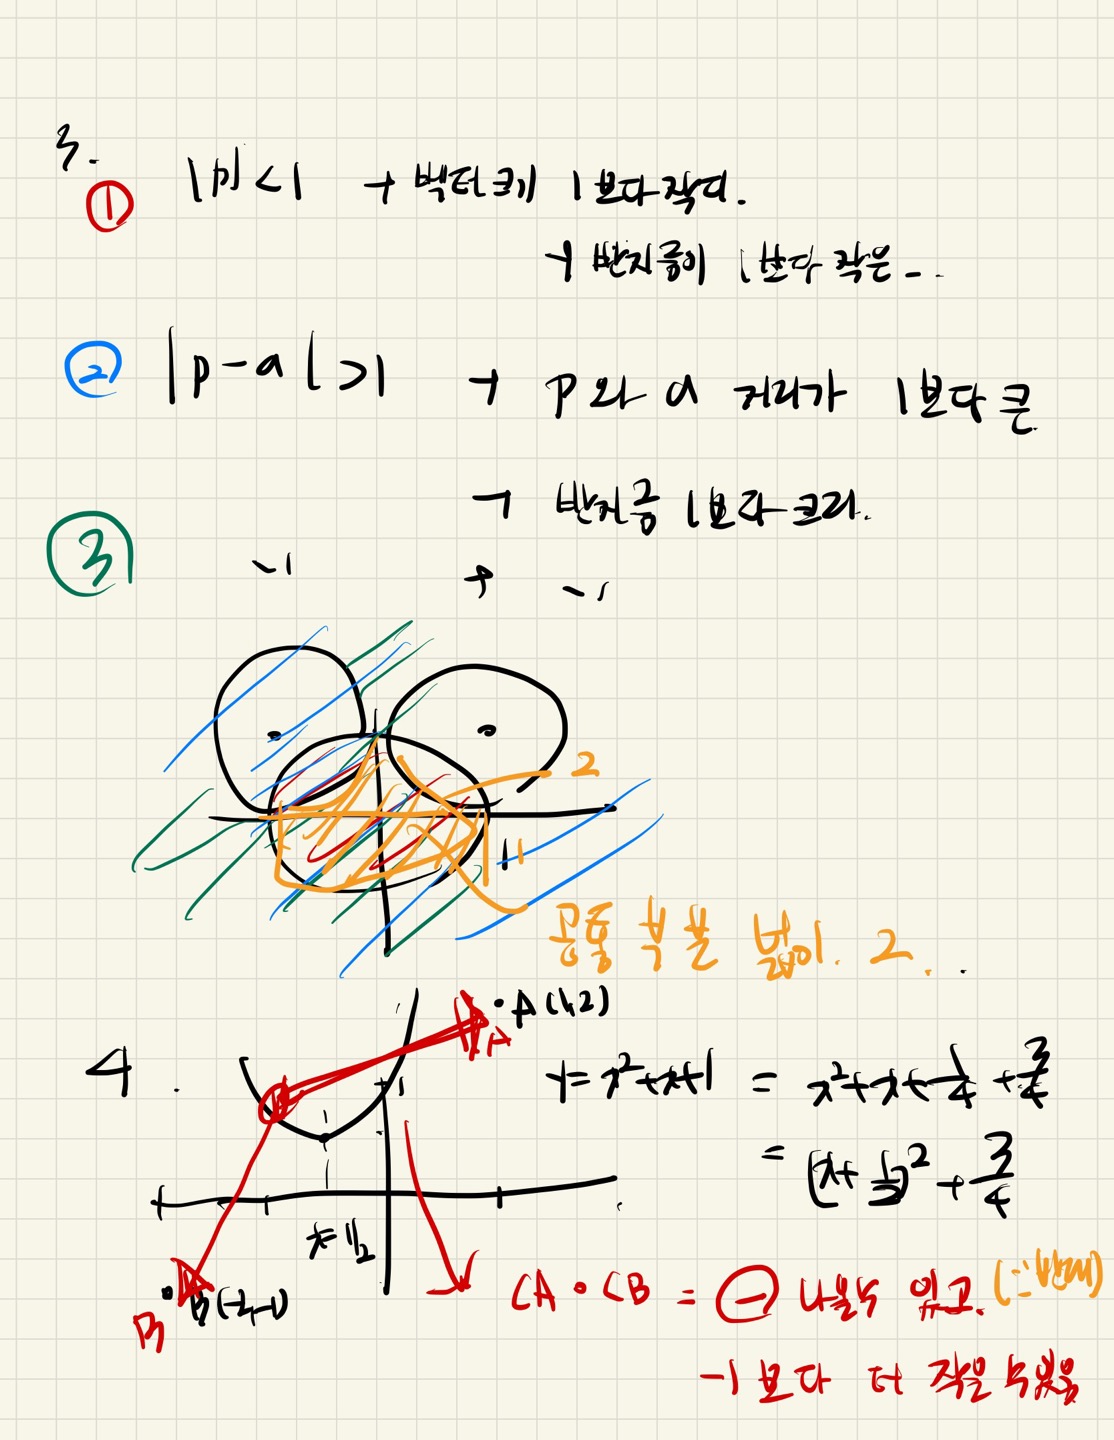 3.
① |p| < 1 → 벡터크기 1보다 작다.
→ 반지름이 1보다 작은..
② |p-a| > 1 → p와 a 거리가 1보다 큰
→ 반지름 1보다 크다.
③ -1 + -1
2
1
공통 부분 넓이. 2.
4.
A(1,2)
A
1
y = x²+x+1 = x²+x+1/4 + 3/4
= (x+1/2)² + 3/4
x=1/2
B(-2,-1)
B
CA · CB = ⊖ 나올수 있고. (∵반대)
-1보다 더 작을 수 있음